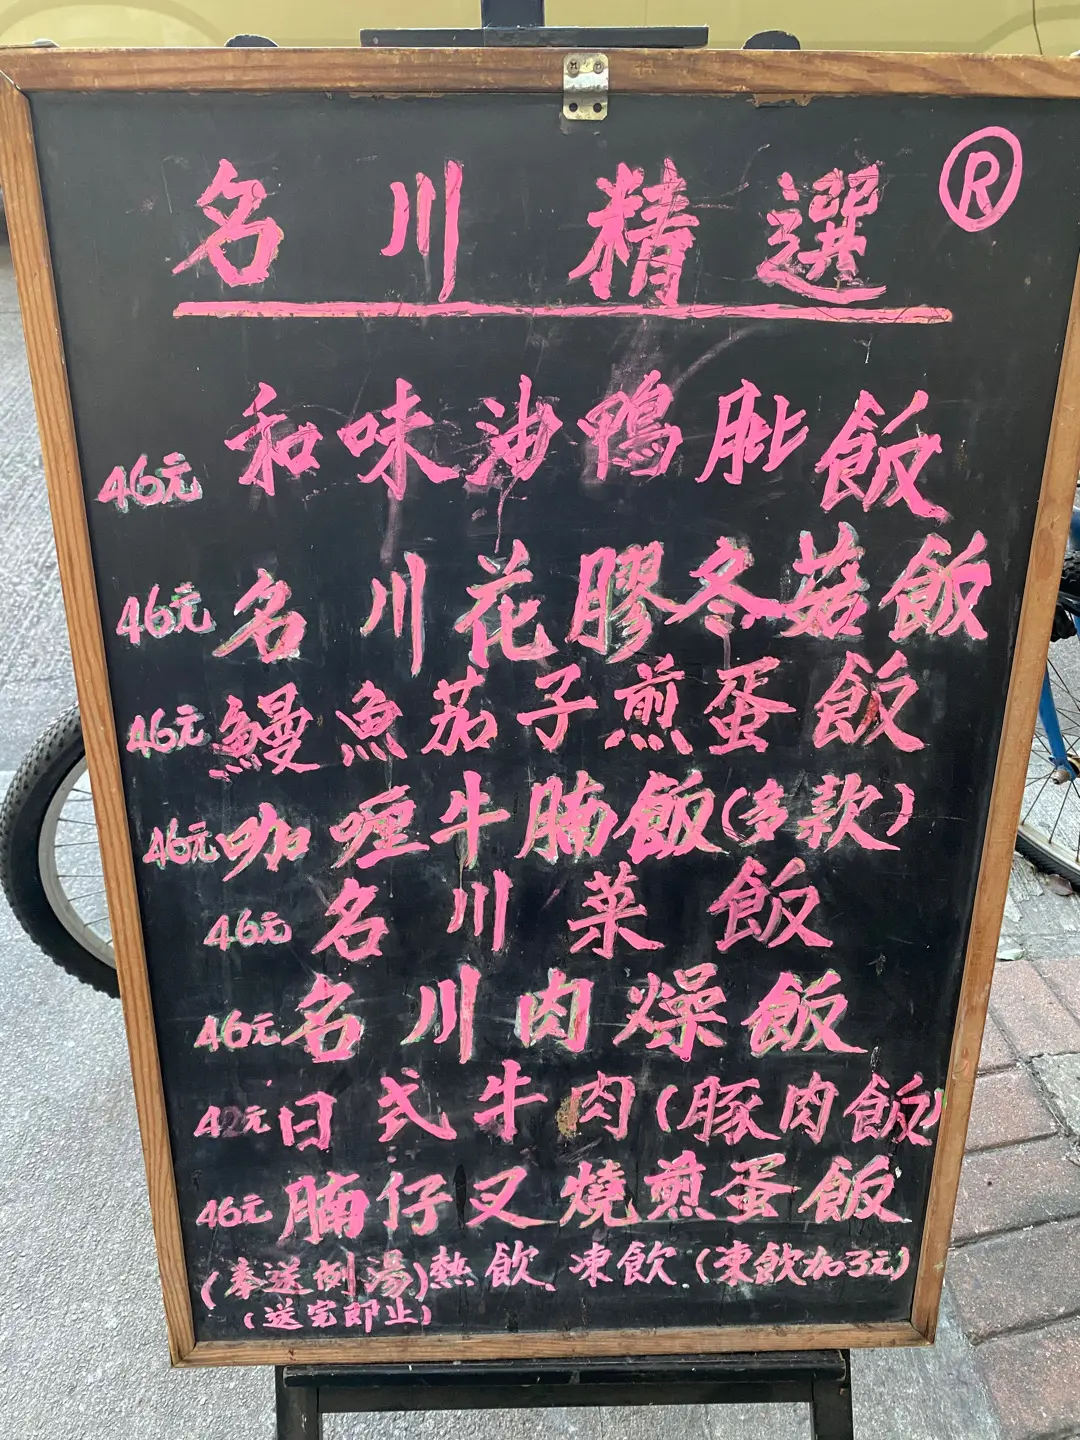 名川精選 Ⓡ
46元 和味油鴨肶飯
46元 名川花膠冬菇飯
46元 鰻魚茄子煎蛋飯
46元 咖喱牛腩飯(多款)
46元 名川菜飯
46元 名川肉燥飯
42元 日式牛肉(豚肉飯)
46元 腩仔叉燒煎蛋飯
(奉送例湯)熱飲、凍飲(凍飲加3元)
(送完即止)